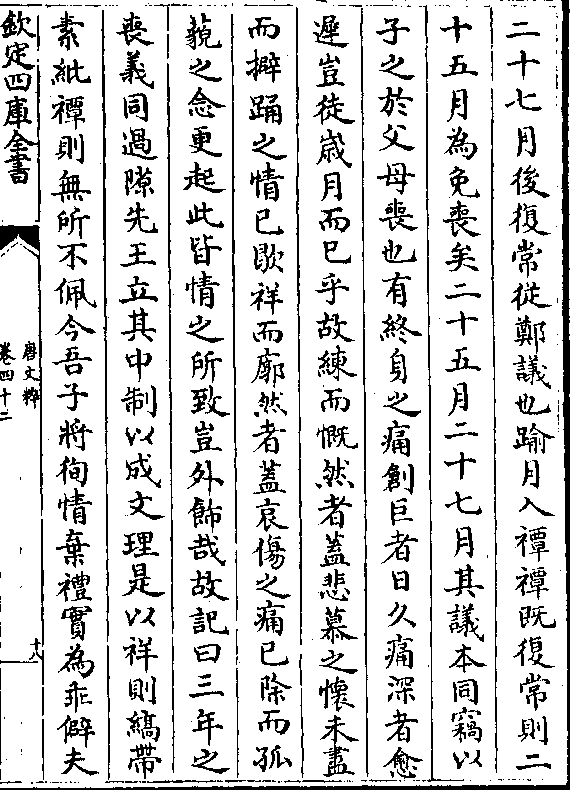 二十七月後復常從鄭議也踰月入禫禫既復常則二
十五月為免喪矣二十五月二十七月其議本同竊以
子之於父母喪也有終身之痛創巨者日久痛深者愈
遲豈徒歲月而已乎故練而慨然者蓋悲慕之懷未盡
而擗踊之情已歇祥而廓然者蓋哀傷之痛已除而孤
藐之念更起此皆情之所致豈外飾哉故記曰三年之
喪義同過隙先王立其中制以成文理是以祥則縞帶
素紕禫則無所不佩今吾子將徇情棄禮實為乖僻夫
欽定四庫全書
唐文粹
卷四十二
十八